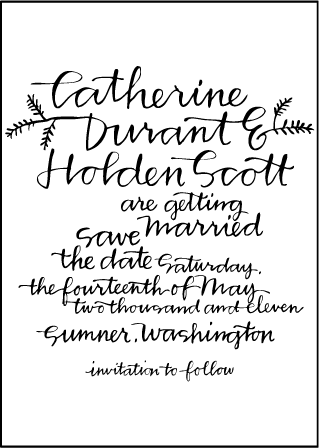 Catherine
Durant &
Holden Scott
are getting
married
save
the date Saturday,
the fourteenth of May
two thousand and eleven
Sumner, Washington
invitation to follow